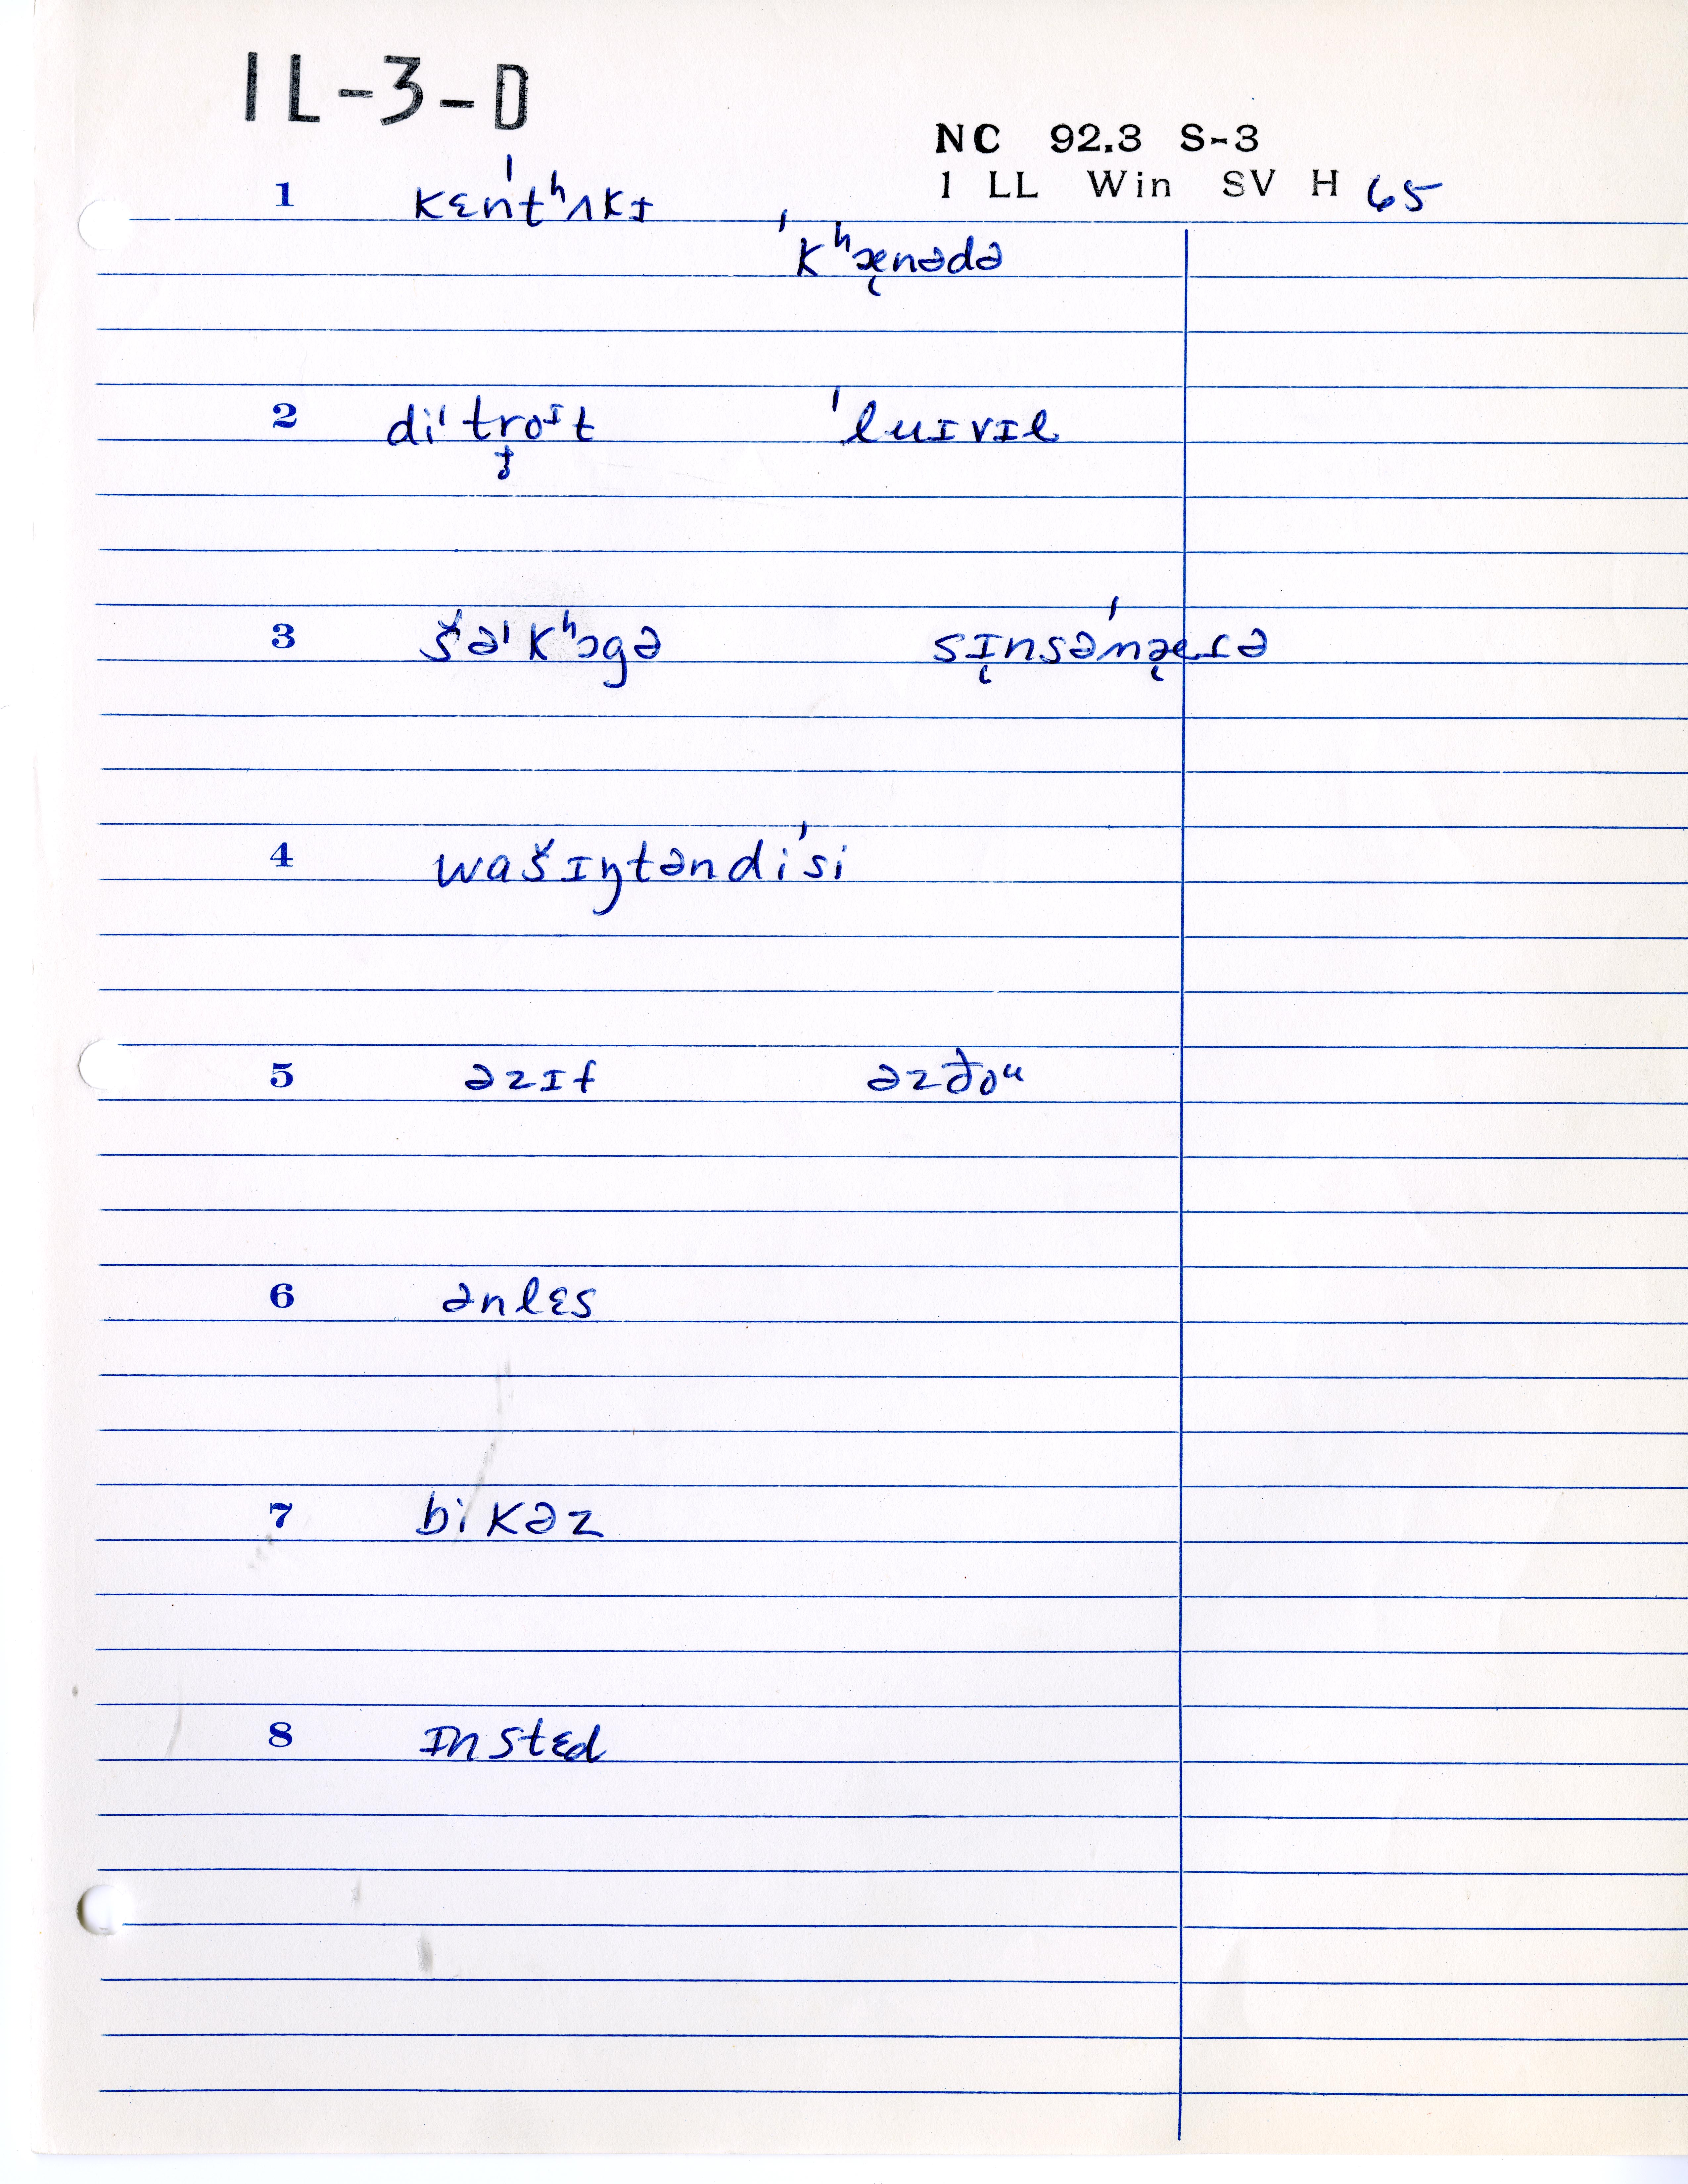 IL-3-D
NC 92.3 S-3
1 LL Win SV H 65
1 kɛnˈtʰʌkɪ
ˈkʰæ̨nədə
2 diˈtro̝ᶦt ˈluɪvɪl
3 šəˈkʰɔgə sɪ̨nsəˈnæ̨ɾə
4 wašɪŋtəndiˈsi
5 əzɪf əzðoᵘ
6 ənlɛs
7 bikəz
8 ɪnstɛd